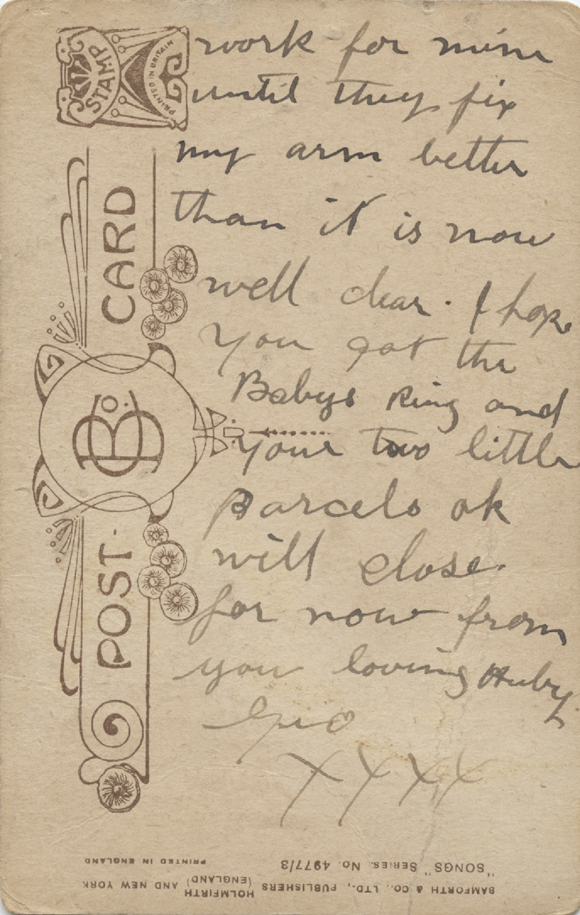 work for mine
until they fix
my arm better
than it is now
well dear. I hope
you got the
Babys Ring and
your two little
Parcels ok
will close.
for now from
you loving Huby
Geo
XXXX
STAMP
PRINTED IN BRITAIN
POST CARD
B & Co.
BAMFORTH & CO., LTD., PUBLISHERS HOLMFIRTH (ENGLAND) AND NEW YORK
"SONGS" SERIES. No. 4977/3 PRINTED IN ENGLAND